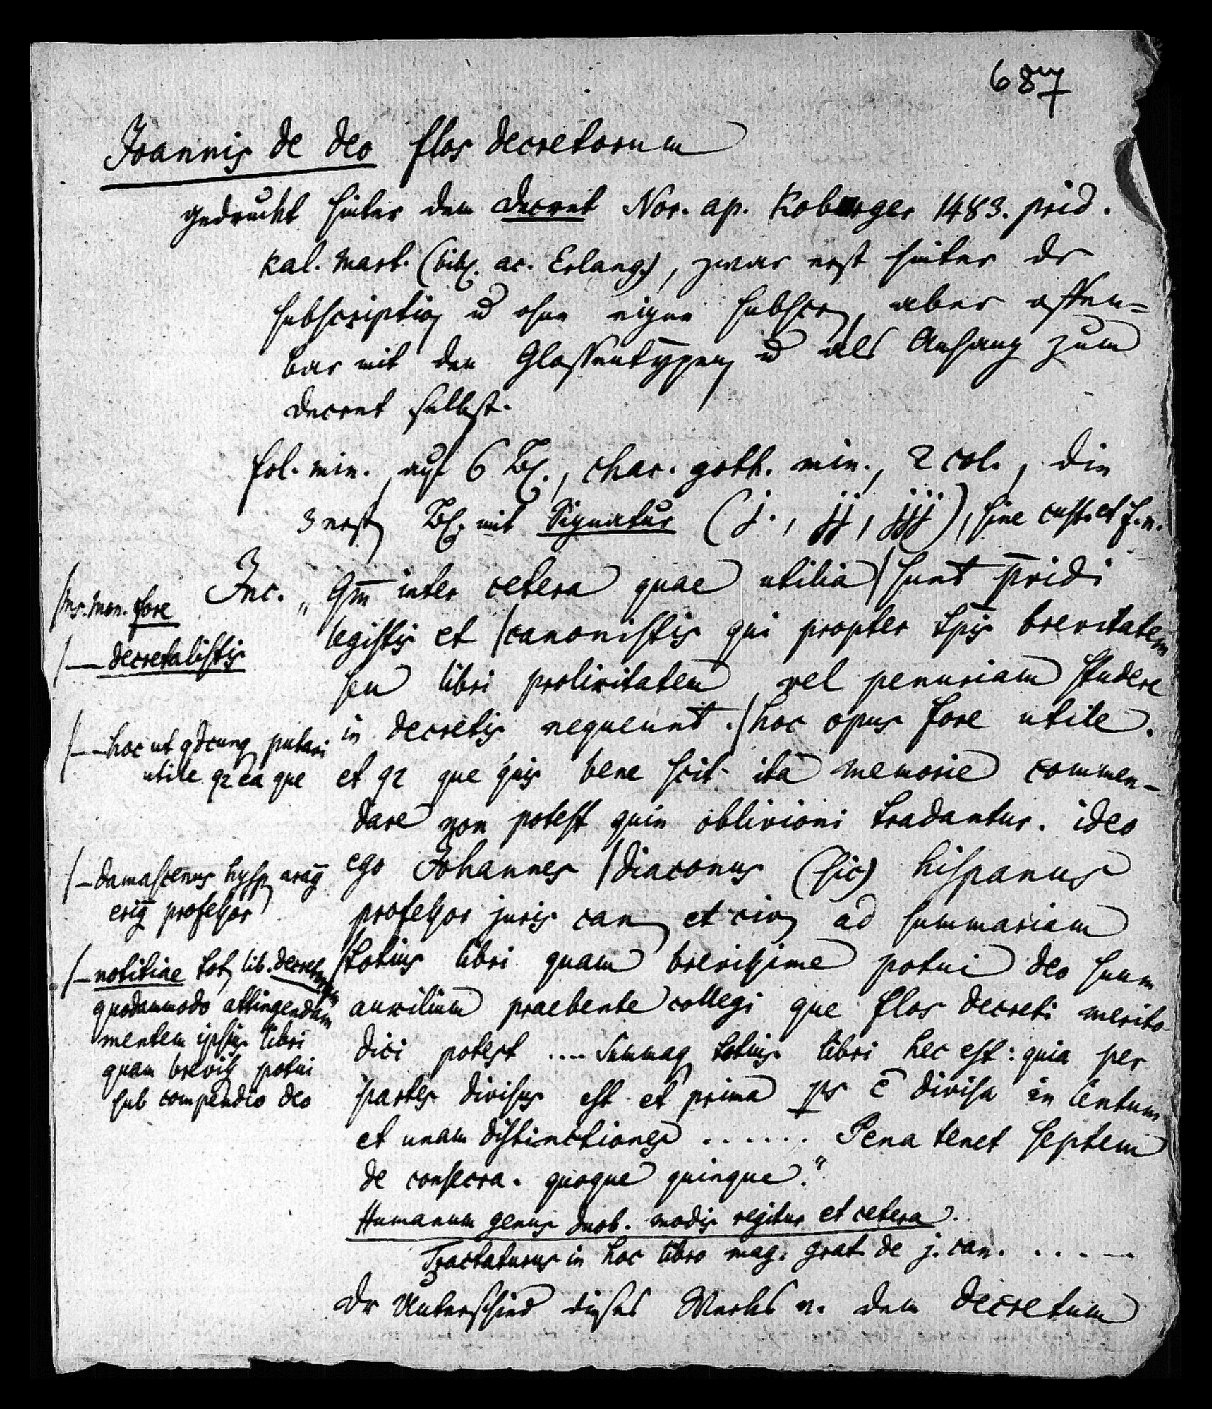 687
Joannis de deo flos decretorum
gedruckt hinter dem Decret Nor. ap. Koberger 1483. prid.
Kal. Mart. (bibl. ac. Erlang.), zwar erst hinter dr
subscription u ohne eigne subscr, aber offen-
bar mit den Glossentypen u als Anhang zum
Decret selbst.
fol. min., auf 6 Bl., char. goth. min., 2 col., die
3 erst Bl. mit Signatur (j., jj, jjj), sine cust. et f. n.
Inc. „Qm inter cetera quae utilia / sunt pridi
legistis et / canonistis qui propter tpis brevitatem
seu libri prolixitatem vel penuriam studere
in decretis nequeunt. / hoc opus fore utile.
et qz que quis bene scit ita memorie commen-
dare non potest quin oblivioni tradantur. ideo
ego Johannes / diaconus (sic) hispanus
professor juris can et civ ad summariam
/ totius libri quam brevissime potui deo suum
auxilium praebente collegi que flos decreti merito
dici potest .... Summa totius libri hec est: quia per
partes divisus est et prima ps ē divisa in Centum
et unam distinctiones ...... Pena tenet septem
de consecra. quoque quinque."
Humanum genus duob. modis regitur et cetera.
Tractaturus in hoc libro mag. grat. de j. can. .....
Dr Unterschied dieses Werks v. dem decretum
/ ms. mon. fore
/ — decretalistis
/ — hoc ut qdcunq putari
utile qz ea que
/ — damascenus hysp
professor
/ — notitiae tot lib. decretorum
quodammodo attingendam
mentem ipsius libri
quam brevis potui
sub compendio deo